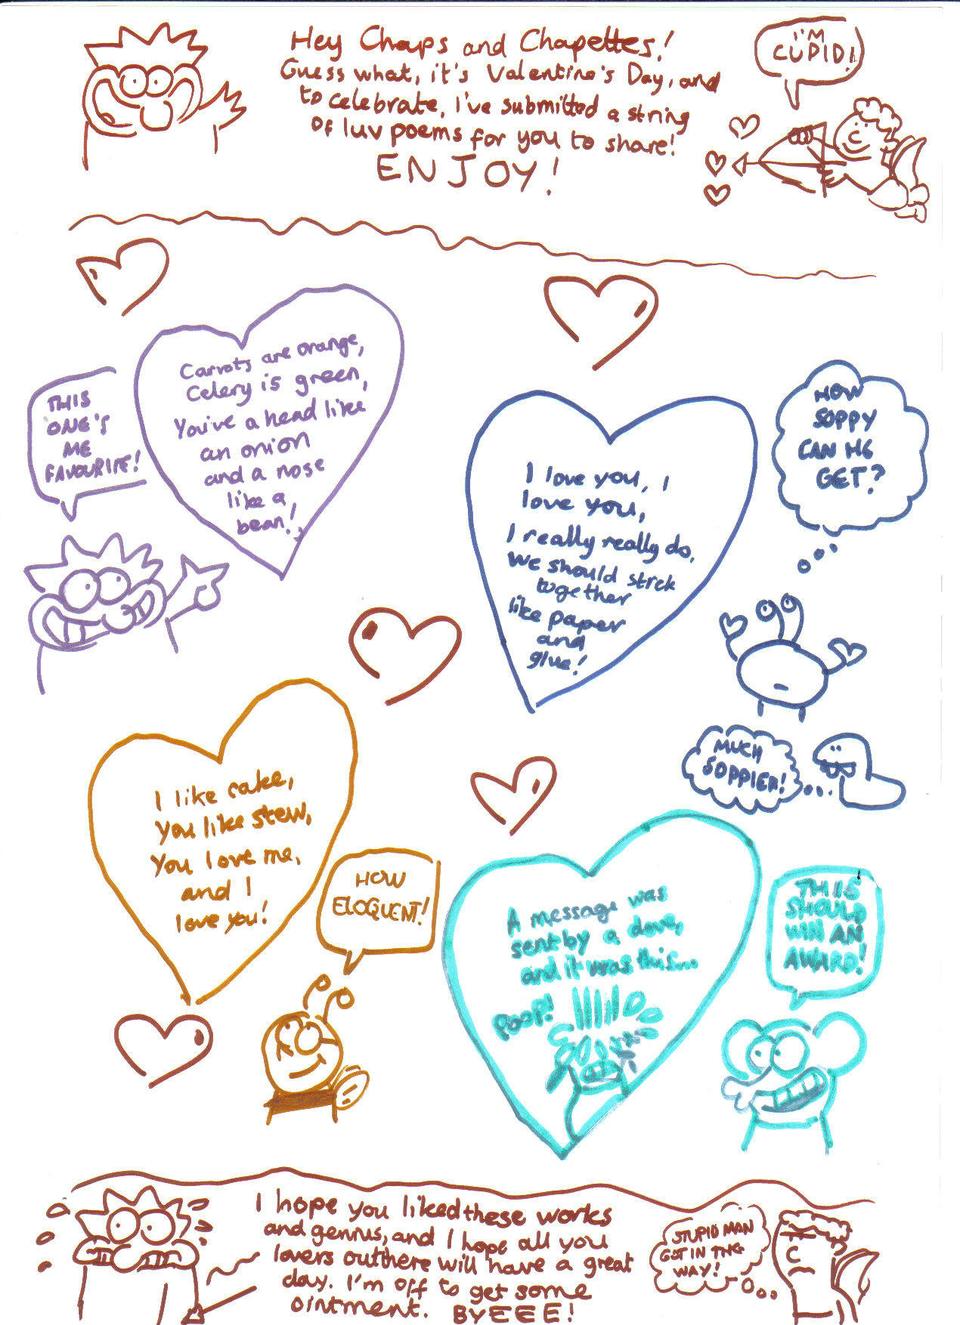 Hey Chaps and Chapettes!
Guess what, it's Valentine's Day, and
to celebrate, I've submitted a string
of luv poems for you to share!
ENJOY!
I'M
CUPID!
Carrots are orange,
Celery is green,
You've a head like
an onion
and a nose
like a
bean!
THIS
ONE'S
ME
FAVOURITE!
I love you, I
love you,
I really really do,
We should stick
together
like paper
and
glue!
HOW
SOPPY
CAN HE
GET?
MUCH
SOPPIER!
I like cake,
You like stew,
You love me,
and I
love you!
HOW
ELOQUENT!
A message was
sent by a dove,
and it was this...
POOP!
THIS
SHOULD
WIN AN
AWARD!
I hope you liked these works
and genius, and I hope all you
lovers out there will have a great
day. I'm off to get some
ointment. BYEEE!
STUPID MAN
GOT IN THE
WAY!